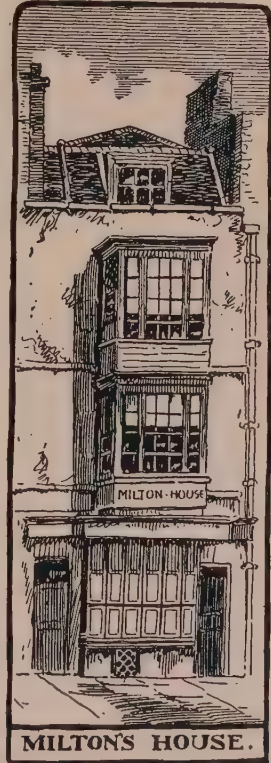 MILTON·HOUSE
MILTON'S HOUSE.